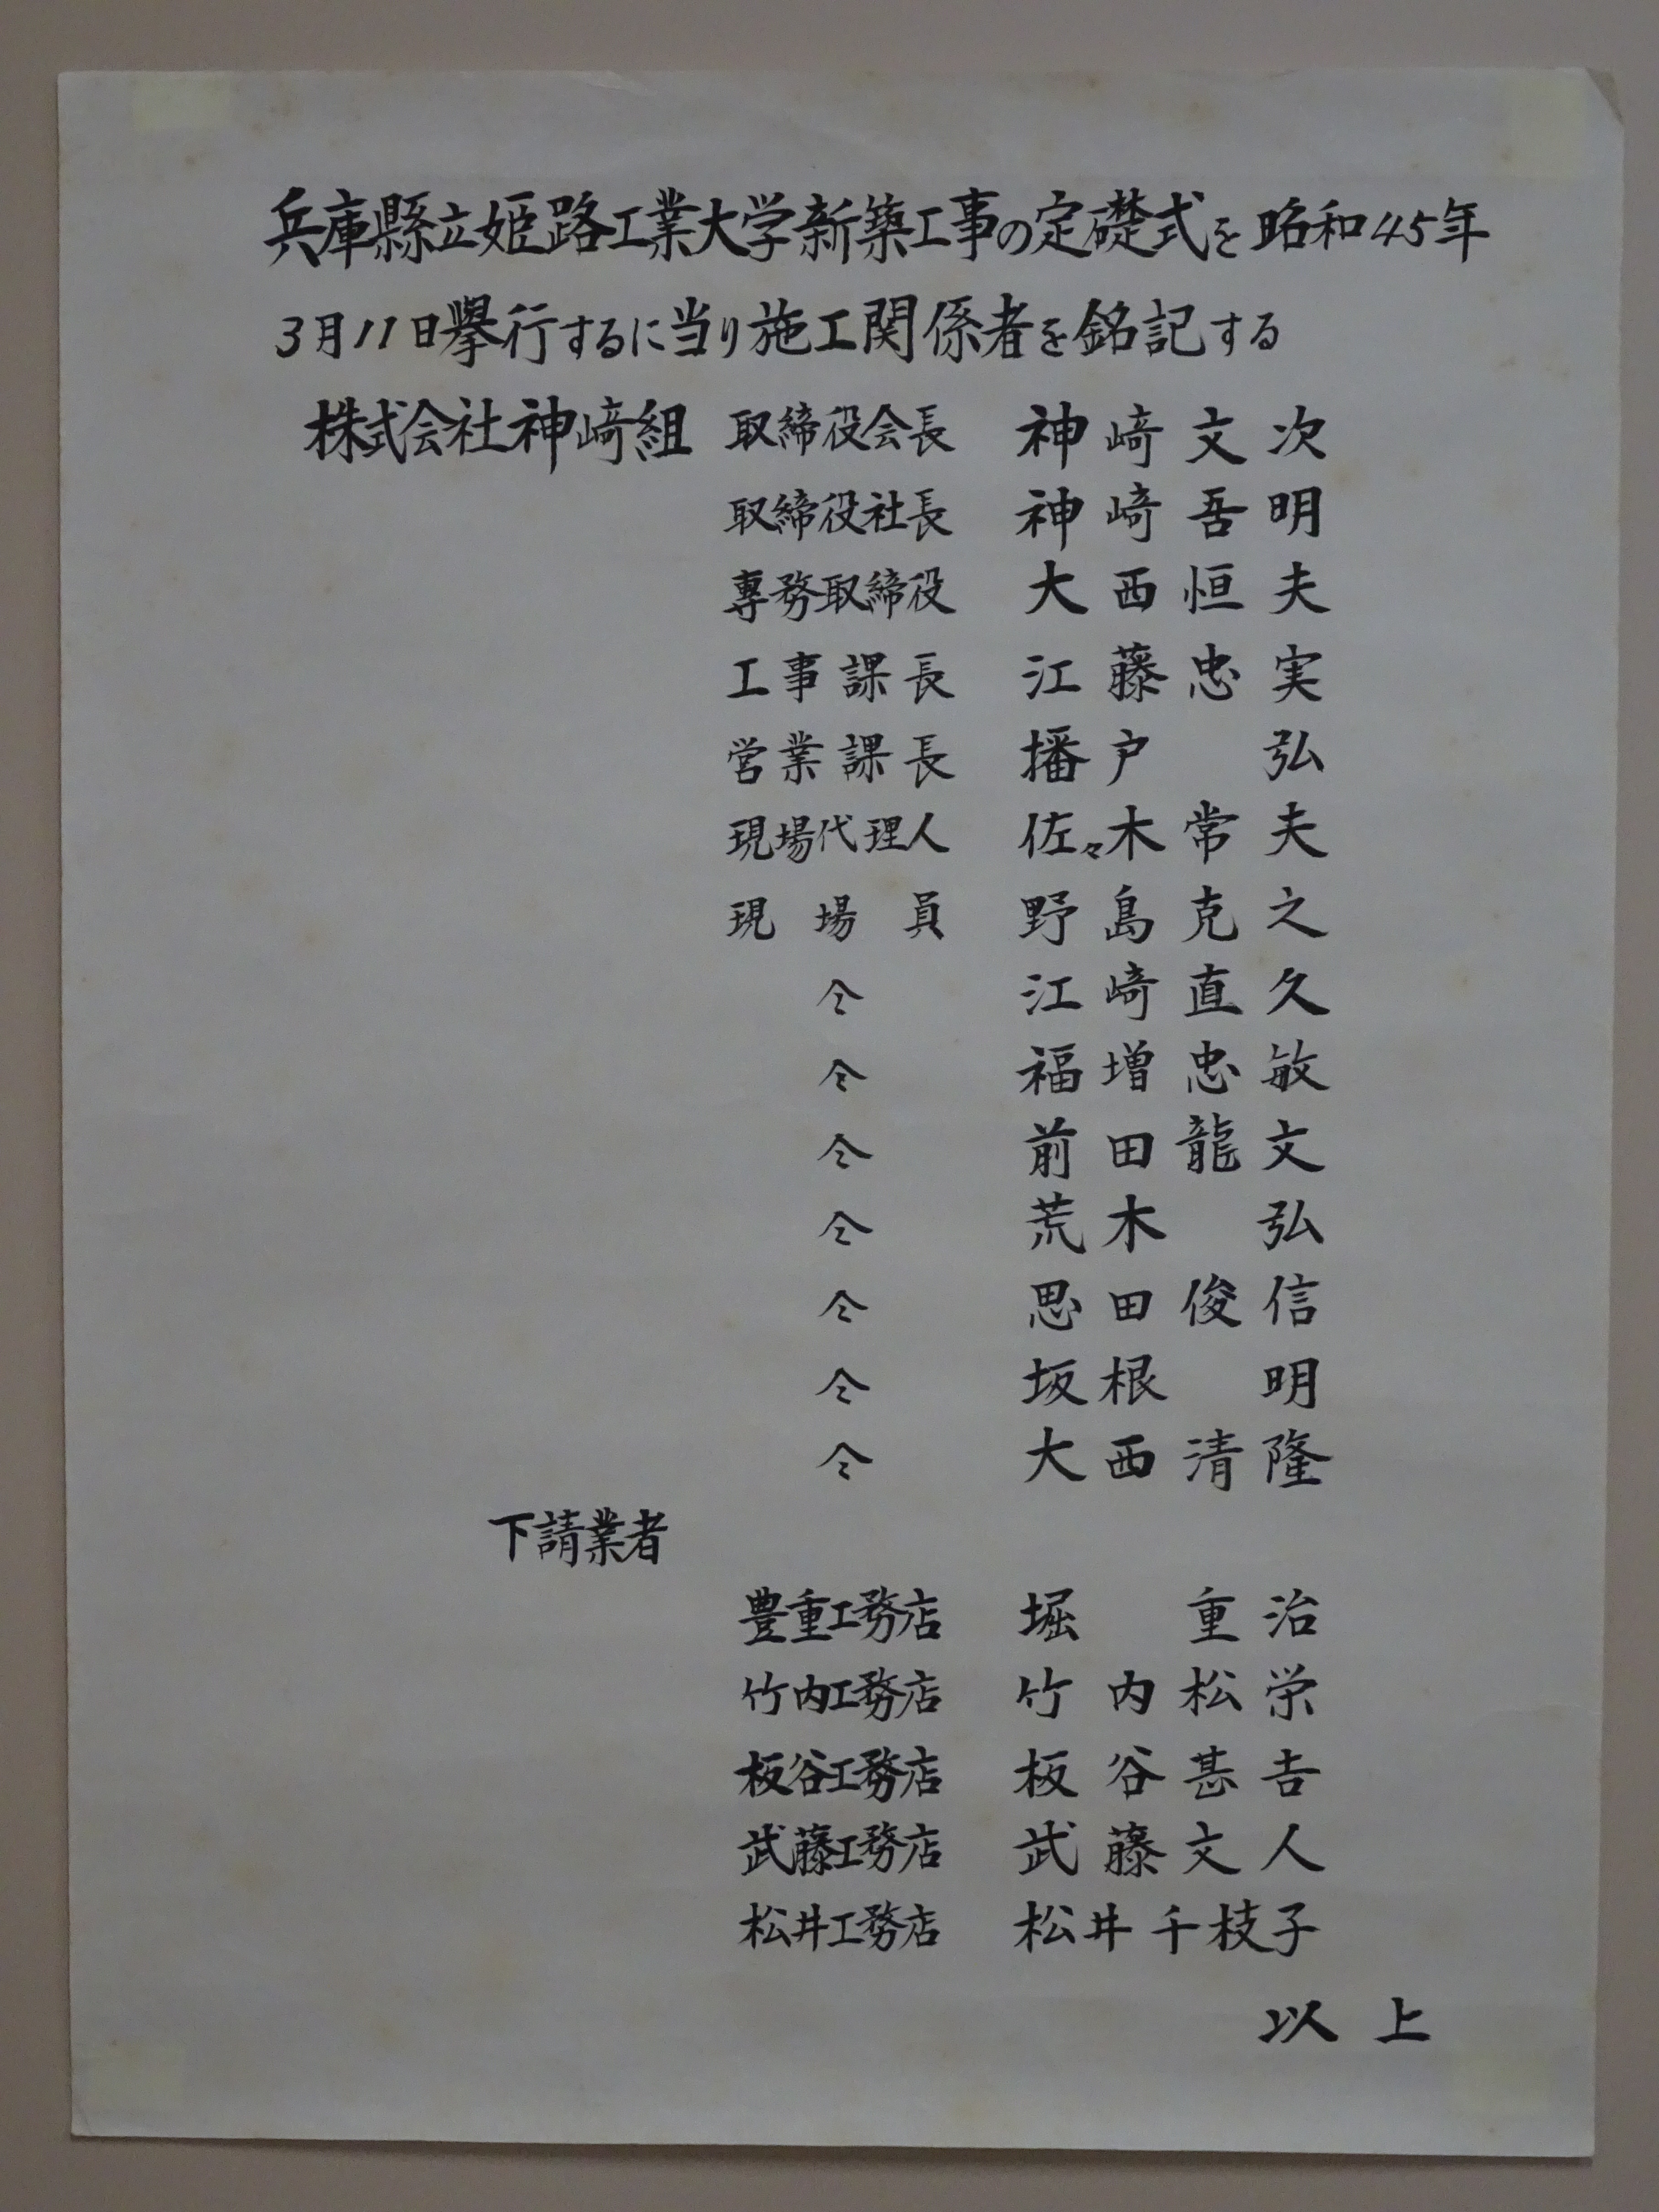 兵庫縣立姫路工業大学新築工事の定礎式を昭和45年
3月11日擧行するに当り施工関係者を銘記する
株式会社神﨑組 取締役会長 神﨑文次
取締役社長 神﨑吾明
專務取締役 大西恒夫
工事課長 江藤忠実
営業課長 播戸 弘
現場代理人 佐々木常夫
現場員 野島克之
仝 江﨑直久
仝 福増忠敏
仝 前田龍文
仝 荒木 弘
仝 思田俊信
仝 坂根 明
仝 大西清隆
下請業者
豊重工務店 堀 重治
竹内工務店 竹内松栄
板谷工務店 板谷甚吉
武藤工務店 武藤文人
松井工務店 松井千枝子
以上